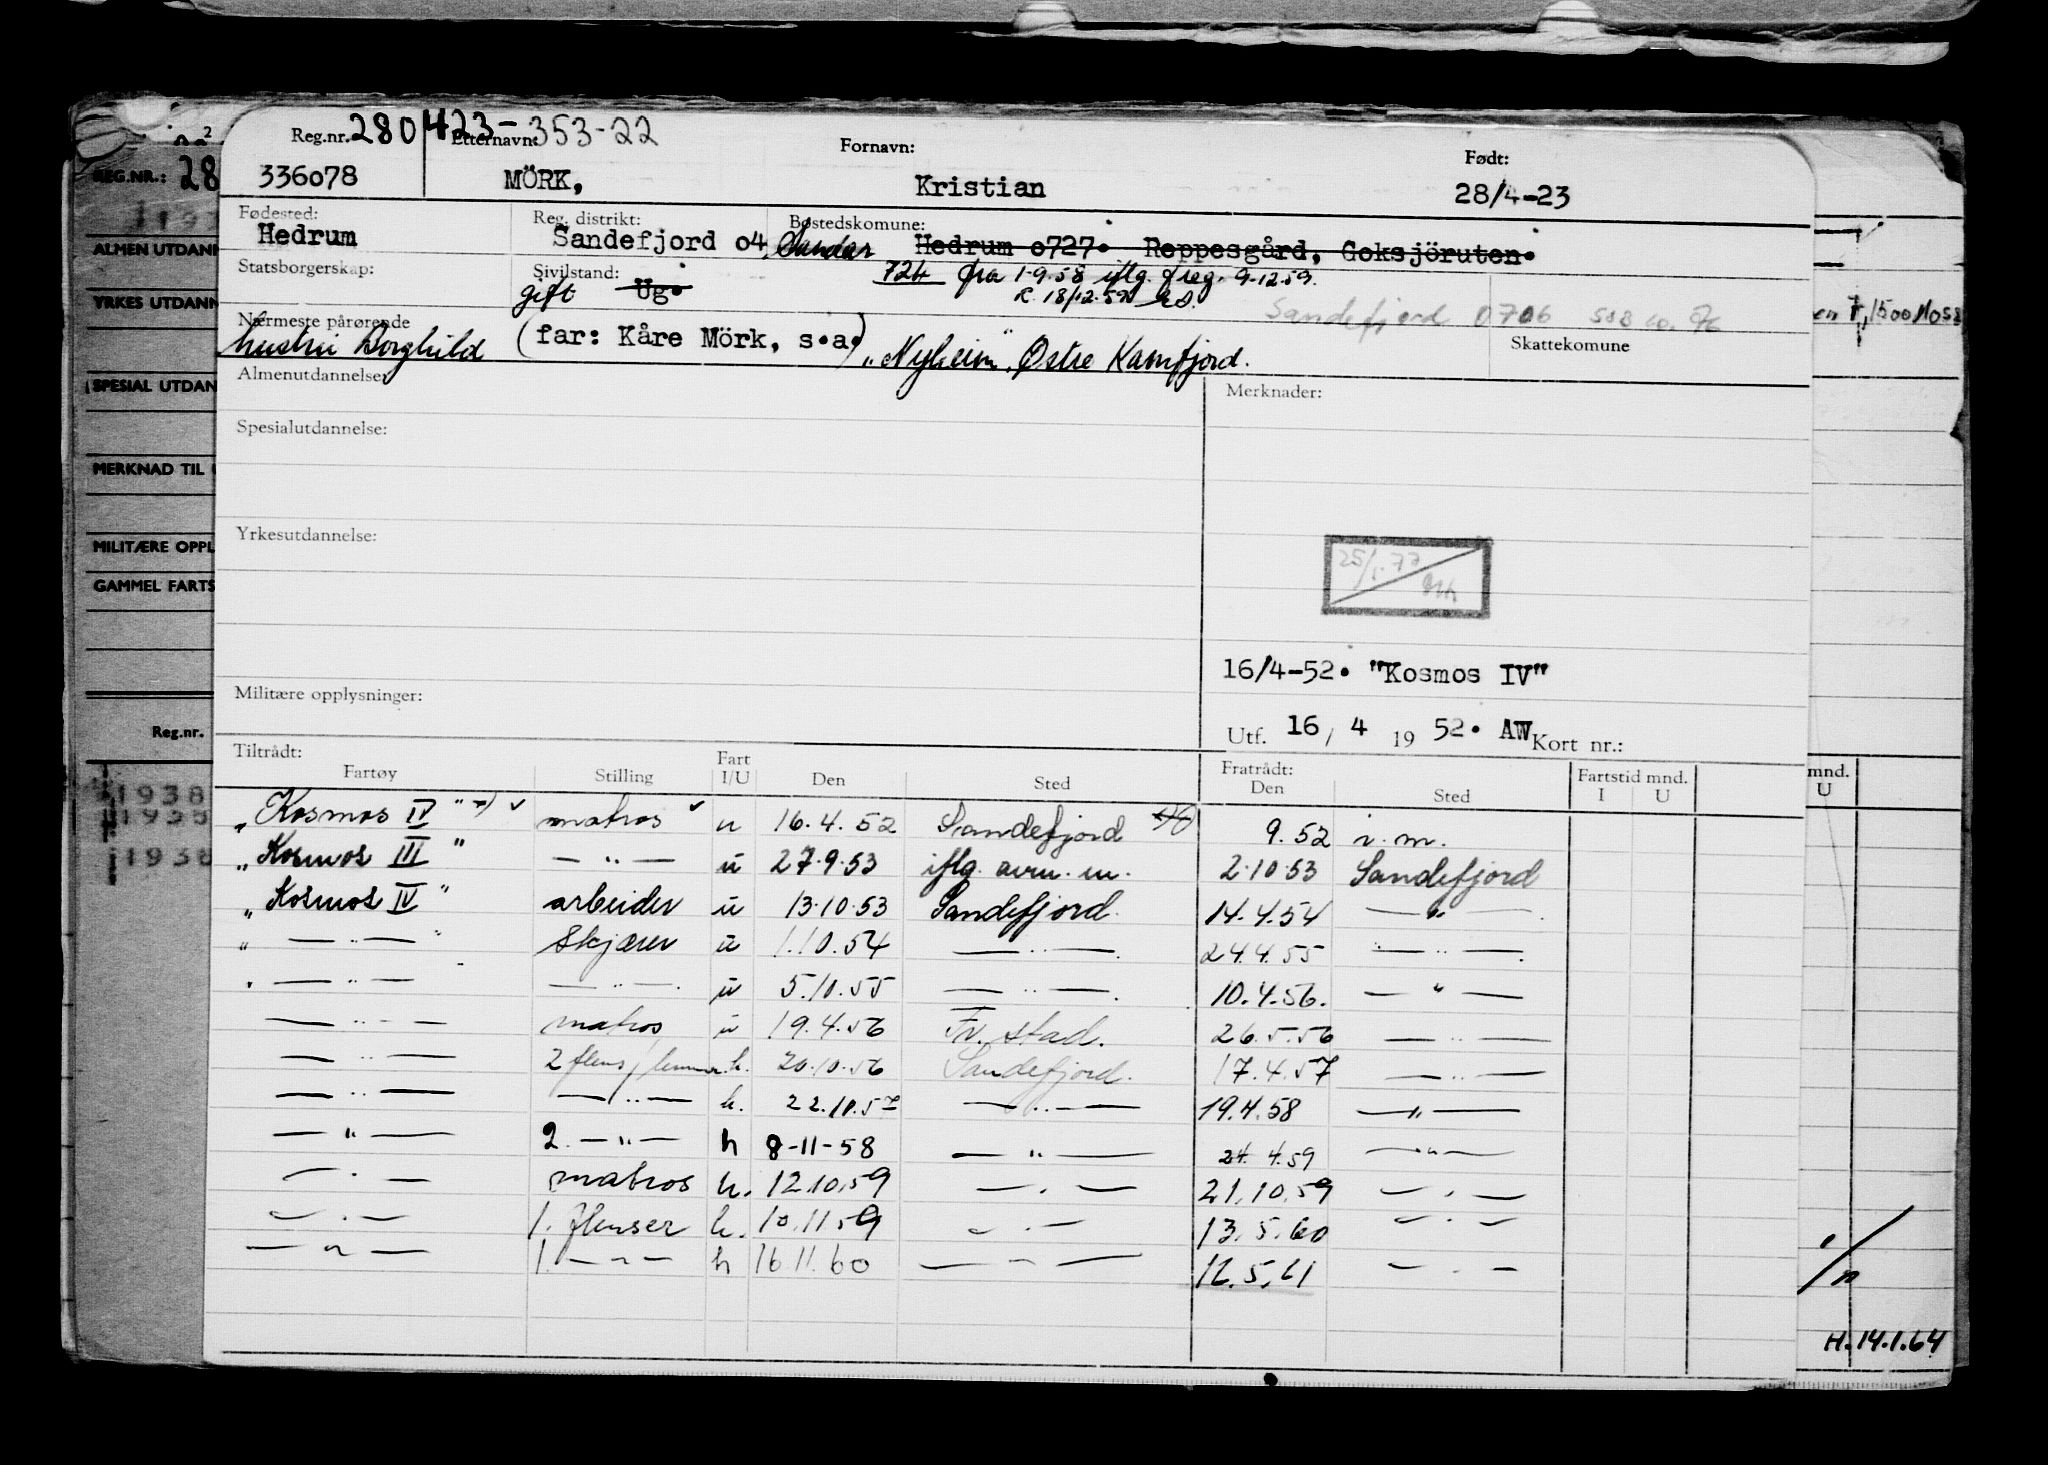 Reg.nr. 280423-353-22 Etternavn: Fornavn: Født:
336078 MÖRK, Kristian 28/4-23
Fødested: Reg. distrikt: Bostedskomune:
Hedrum Sandefjord 04 Sandar Hedrum 0727. Reppesgård, Goksjöruten.
Statsborgerskap: Sivilstand: 724 fra 1-9.58 iflg. freg. 9-12.59.
gift Ug. R. 18/12.59
Sandefjord 0706
Nærmeste pårørende (far: Kåre Mörk, s.a.) Skattekomune
hustru Borghild "Nyheim", Østre Kamfjord.
Almenutdannelse: Merknader:
Spesialutdannelse:
Yrkesutdannelse:
25/1.77
16/4-52. "Kosmos IV"
Militære opplysninger:
Utf. 16 / 4 19 52. AW Kort nr.:
Tiltrådt: Fratrådt:
Fartøy Stilling Fart I/U Den Sted Den Sted Fartstid mnd. I U
"Kosmos IV" matros u 16.4.52 Sandefjord 9.52 i.m.
"Kosmos III" — " — u 27.9.53 iflg. avm. m. 2.10.53 Sandefjord
"Kosmos IV" arbeider u 13.10.53 Sandefjord. 14.4.54 — " —
" — " — " skjærer u 1.10.54 — " — 24.4.55 — " —
" — " — — " — u 5.10.55 — " — 10.4.56. — " —
— " — matros u 19.4.56 Fr. stad. 26.5.56 — " —
— " — 2 flens/lemmer h. 20.10.56 Sandefjord. 17.4.57 — " —
— " — — " — h. 22.10.57 — " — 19.4.58 — " —
— " — 2. — " — h 8-11-58 — " — 24.4.59 — " —
— " — matros h. 12.10.59 — " — 21.10.59 — " —
— " — 1. flenser h. 10.11.59 — " — 13.5.60 — " —
— " — 1. — " — h 16.11.60 — " — 12.5.61 — " —
REG.NR.: 28
ALMEN UTDANN
YRKES UTDANN
SPESIAL UTDAN
MERKNAD TIL
MILITÆRE OPPL
GAMMEL FARTS
Reg.nr.
1938
1935
1938
mnd.
U
H.14.1.64